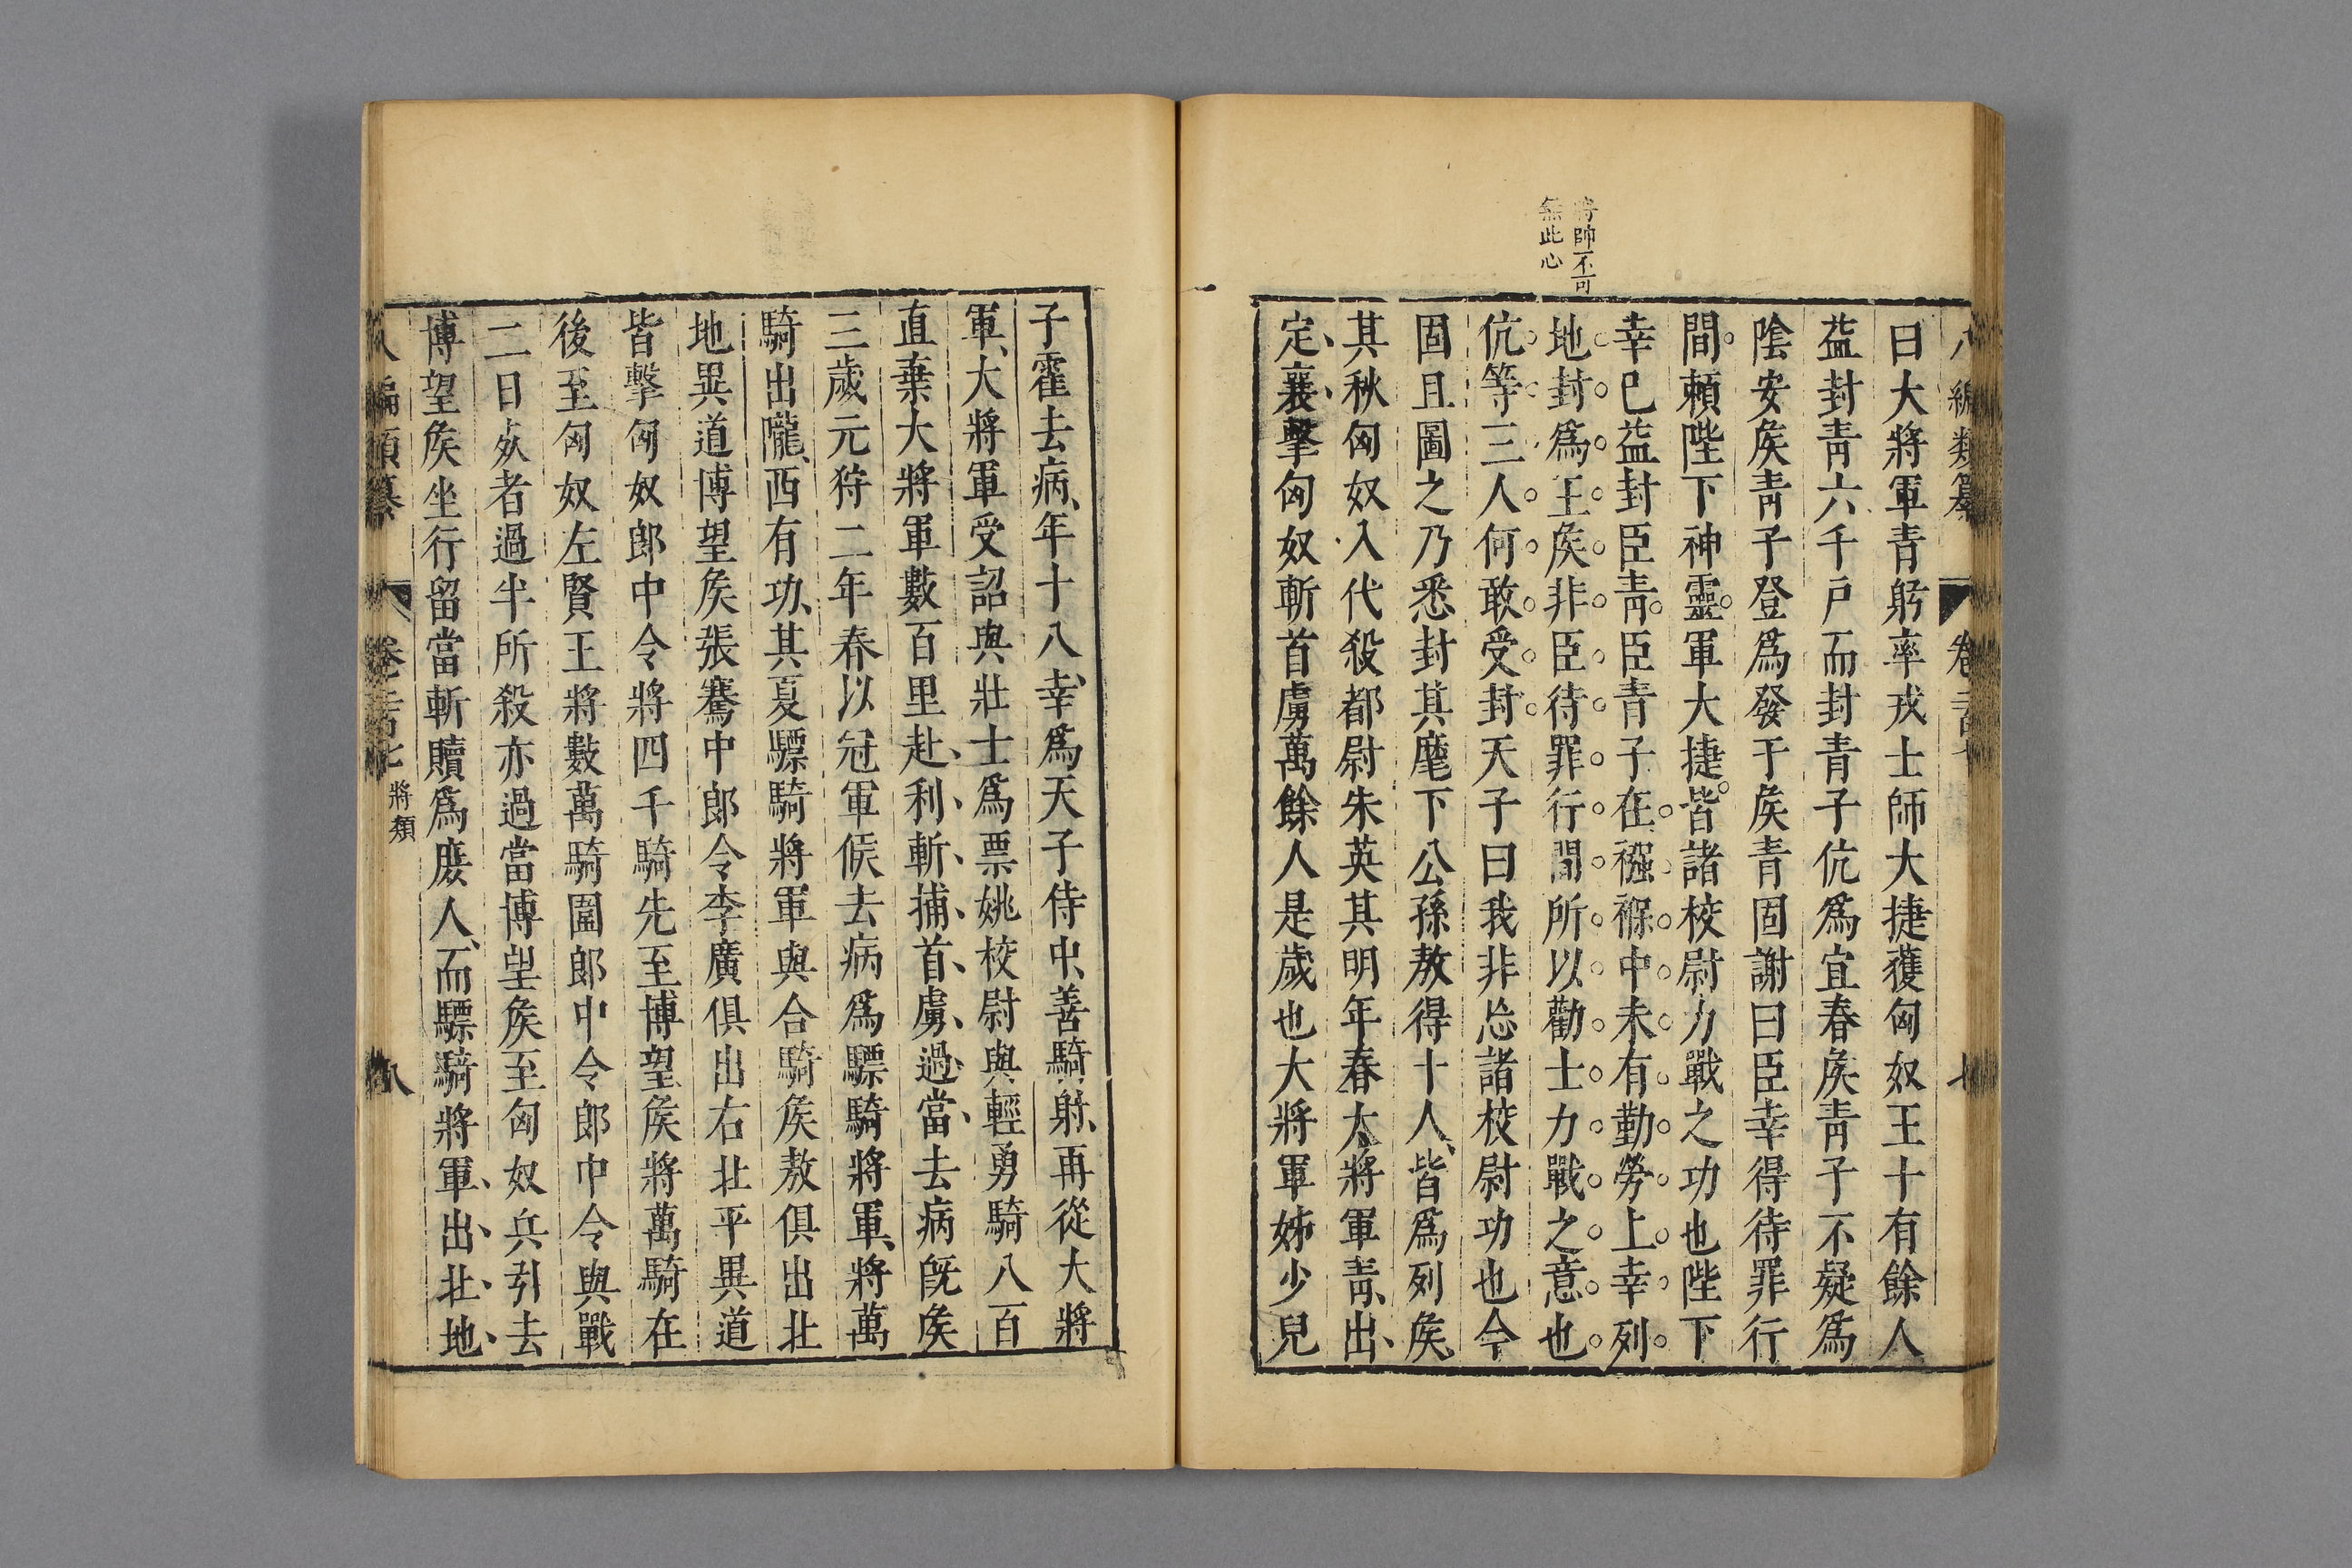 八編類纂 卷 七
曰大將軍青躬率戎士師大捷獲匈奴王十有餘人
益封青六千戸而封青子伉爲宜春矦青子不疑爲
陰安矦青子登爲發干矦青固謝曰臣幸得待罪行
間賴陛下神靈軍大捷皆諸校尉力戰之功也陛下
幸已益封臣青臣青子在襁褓中未有勤勞上幸列
地封爲王矦非臣待罪行間所以勸士力戰之意也
伉等三人何敢受封天子曰我非忘諸校尉功也今
固且圖之乃悉封其麾下公孫敖得十人皆爲列矦
其秋匈奴入代殺都尉朱英其明年春大將軍青出
定襄擊匈奴斬首虜萬餘人是歲也大將軍姊少兒
將帥不可
無此心
子霍去病年十八幸爲天子侍中善騎射再從大將
軍大將軍受詔與壯士爲票姚校尉與輕勇騎八百
直棄大將軍數百里赴利斬捕首虜過當去病旣矦
三歲元狩二年春以冠軍候去病爲驃騎將軍將萬
騎出隴西有功其夏驃騎將軍與合騎矦敖俱出北
地異道博望矦張騫中郎令李廣俱出右北平異道
皆擊匈奴郎中令將四千騎先至博望矦將萬騎在
後至匈奴左賢王將數萬騎圍郎中令郎中令與戰
二日㱙者過半所殺亦過當博望矦至匈奴兵引去
博望矦坐行留當斬贖爲庻人而驃騎將軍出北地
八編類纂 卷 將類 八